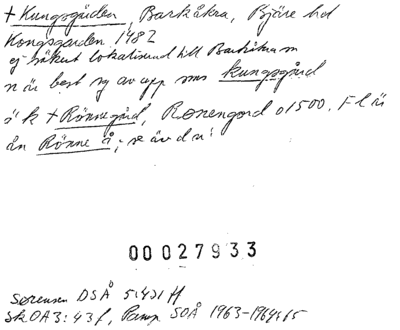 + Kungsgården, Barkåkra, Bjäre hd
Kongsgarden 1482
ej säkert lokaliserad till Barkåkra sn
n är best sg av app sms kungsgård
i k + Rönnegård, Ronnengord o1500. Fl är
ån Rönne å; se äv d n!
00027933
Sørensen DSÅ 5:431 ff
SkOA3: 43 f, Pamp SOÅ 1963-1964:15